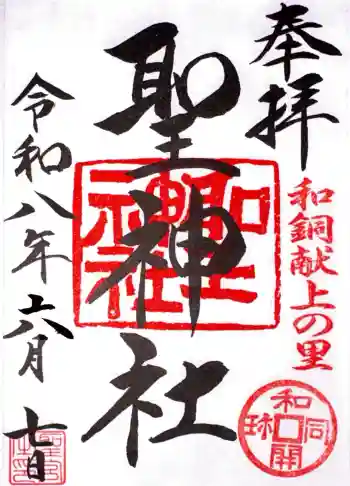 奉拝
和銅献上の里
和同開珎
聖神社
聖神社
令和八年六月七日